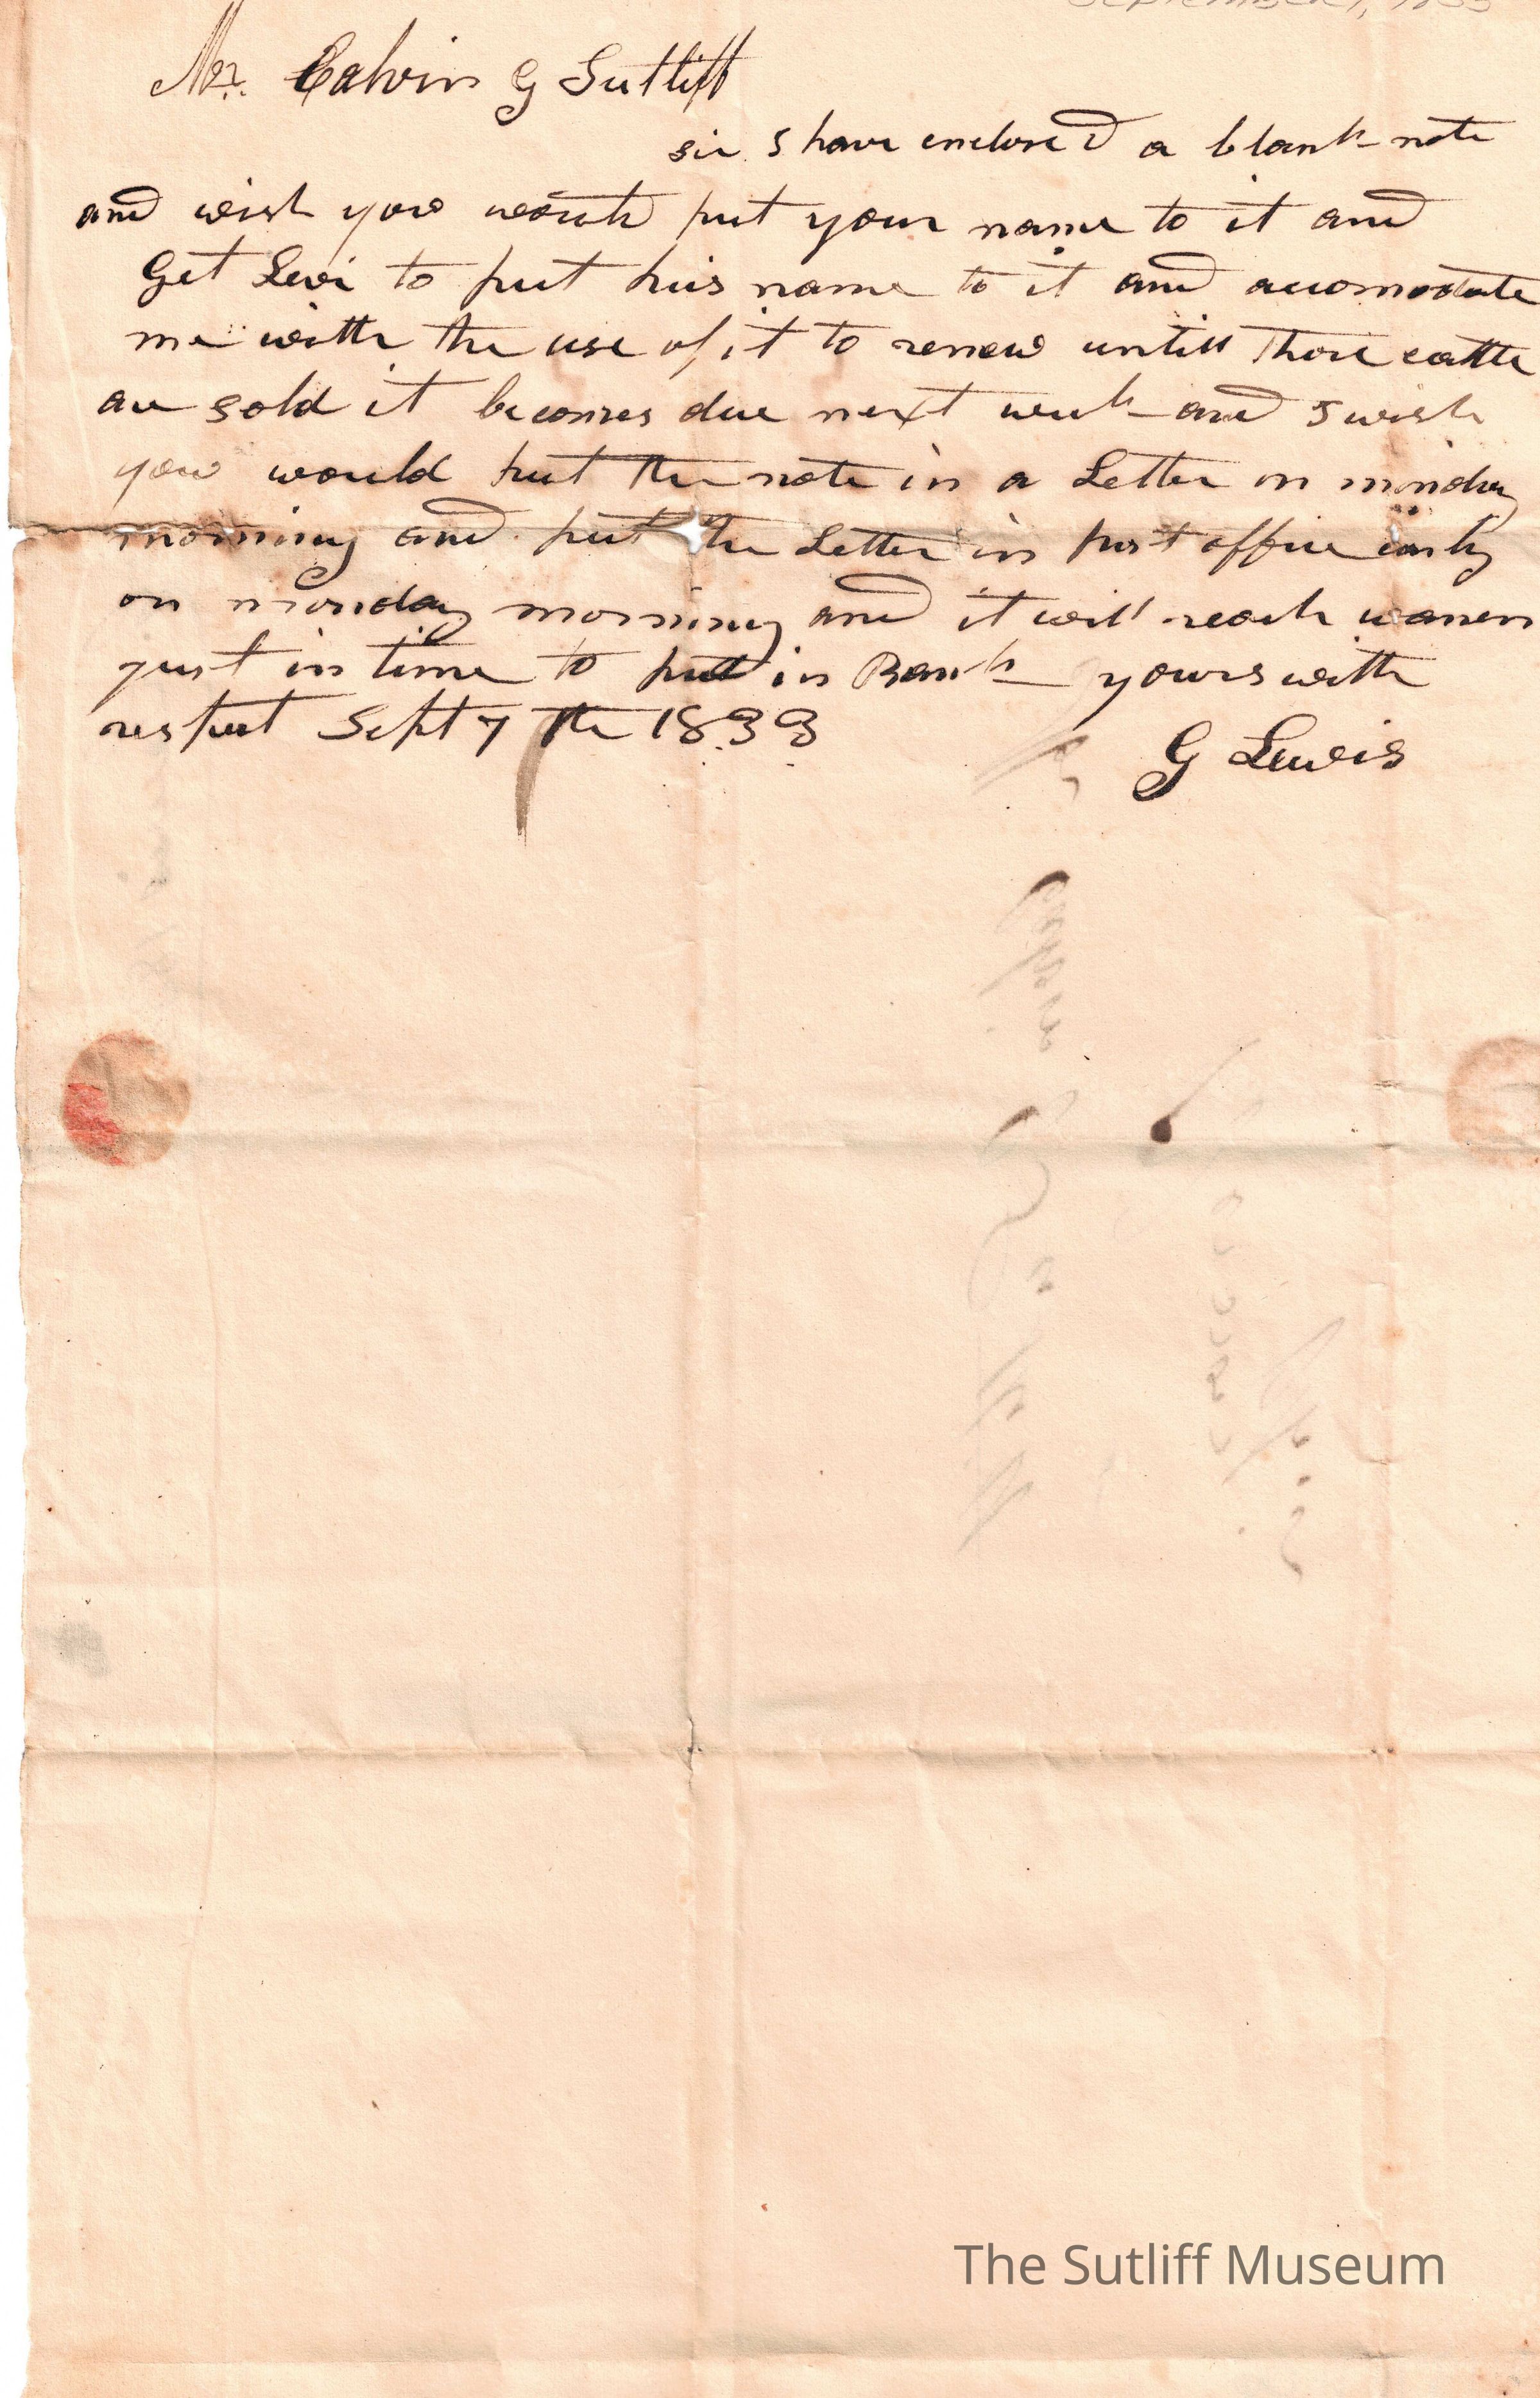 September 7, 1833
Mr. Calvin G Sutliff
sir I have enclosed a blank note
and wish you would put your name to it and
Get Levi to put his name to it and accomodate
me with the use of it to renew untill those cattle
are sold it becomes due next week and I wish
you would put the note in a Letter on monday
morning and put the Letter in post office early
on monday morning and it will reach warren
just in time to put in Bank yours with
respect Sept 7 th 1833
G Lewis
The Sutliff Museum